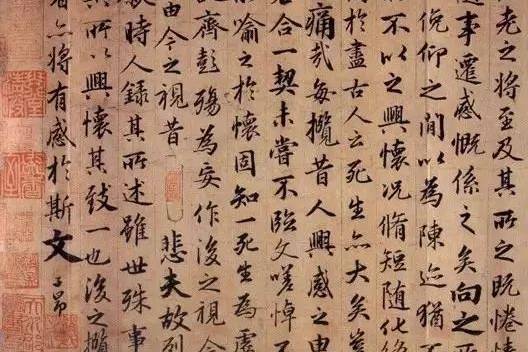 老之將至及其所之既惓情
隨事遷感慨係之矣向之所
俛仰之間以為陳迹猶不
不以之興懷況脩短隨化終
於盡古人云死生亦大矣豈
痛哉每攬昔人興感之由
若合一契未嘗不臨文嗟悼不
能喻之於懷固知一死生為虛
誕齊彭殤為妄作後之視今
由今之視昔 悲夫故列
敘時人錄其所述雖世殊事
異所以興懷其致一也後之攬
者亦將有感於斯文 子昂